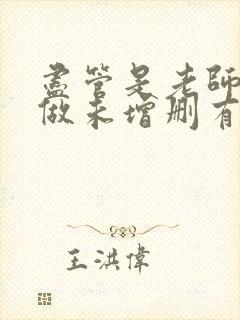 盡管是老師
做未增删有
王洪偉